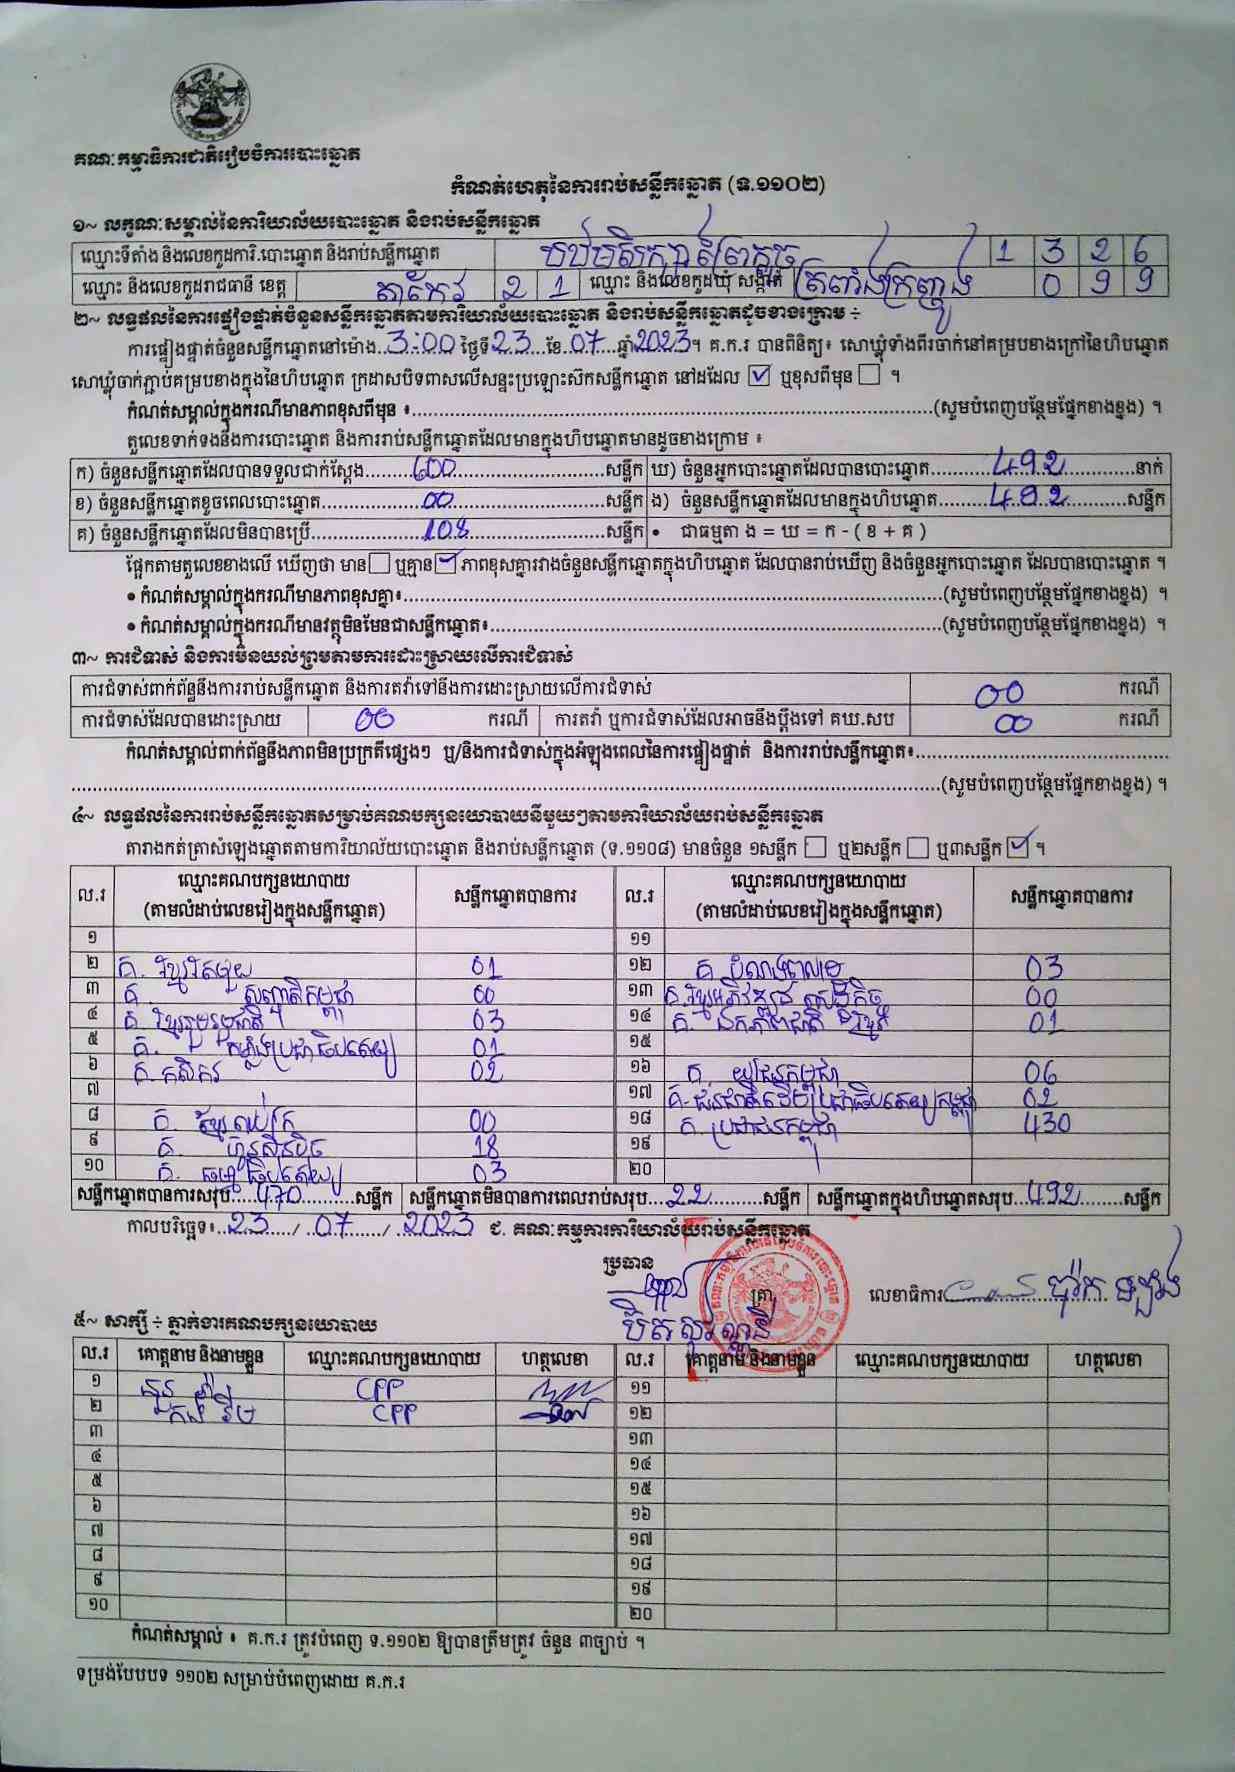 គណៈកម្មាធិការជាតិរៀបចំការបោះឆ្នោត
កំណត់ហេតុនៃការរាប់សន្លឹកឆ្នោត (ទ.១១០២)
១~ លក្ខណៈសម្គាល់នៃការិយាល័យបោះឆ្នោត និងរាប់សន្លឹកឆ្នោត
ឈ្មោះទីតាំង និងលេខកូដការិ.បោះឆ្នោត និងរាប់សន្លឹកឆ្នោត បឋមសិក្សា 1 3 2 6
ឈ្មោះ និងលេខកូដរាជធានី ខេត្ត តាកែវ 2 1 ឈ្មោះ និងលេខកូដឃុំ សង្កាត់ ត្រពាំងក្រញូង 0 9 9
២~ លទ្ធផលនៃការផ្ទៀងផ្ទាត់ចំនួនសន្លឹកឆ្នោតតាមការិយាល័យបោះឆ្នោត និងរាប់សន្លឹកឆ្នោតដូចខាងក្រោម ÷
ការផ្ទៀងផ្ទាត់ចំនួនសន្លឹកឆ្នោតនៅម៉ោង 3:00 ថ្ងៃទី 23 ខែ 07 ឆ្នាំ 2023 ។ គ.ក.រ បានពិនិត្យ៖ សោឃ្លុំទាំងពីរចាក់នៅគម្របខាងក្រៅនៃហិបឆ្នោត
សោឃ្លុំចាក់ភ្ជាប់គម្របខាងក្នុងនៃហិបឆ្នោត ក្រដាសបិទពាសលើសន្ទះប្រឡោះស៊កសន្លឹកឆ្នោត នៅដដែល ☑ ឬខុសពីមុន ☐ ។
កំណត់សម្គាល់ក្នុងករណីមានភាពខុសពីមុន ៖ (សូមបំពេញបន្ថែមផ្នែកខាងខ្នង) ។
តួលេខទាក់ទងនឹងការបោះឆ្នោត និងការរាប់សន្លឹកឆ្នោតដែលមានក្នុងហិបឆ្នោតមានដូចខាងក្រោម ៖
ក) ចំនួនសន្លឹកឆ្នោតដែលបានទទួលជាក់ស្តែង 600 សន្លឹក ឃ) ចំនួនអ្នកបោះឆ្នោតដែលបានបោះឆ្នោត 492 នាក់
ខ) ចំនួនសន្លឹកឆ្នោតខូចពេលបោះឆ្នោត 00 សន្លឹក ង) ចំនួនសន្លឹកឆ្នោតដែលមានក្នុងហិបឆ្នោត 492 សន្លឹក
គ) ចំនួនសន្លឹកឆ្នោតដែលមិនបានប្រើ 108 សន្លឹក • ជាធម្មតា ង = ឃ = ក - ( ខ + គ )
ផ្អែកតាមតួលេខខាងលើ ឃើញថា មាន ☐ ឬគ្មាន ☑ ភាពខុសគ្នារវាងចំនួនសន្លឹកឆ្នោតក្នុងហិបឆ្នោត ដែលបានរាប់ឃើញ និងចំនួនអ្នកបោះឆ្នោត ដែលបានបោះឆ្នោត ។
• កំណត់សម្គាល់ក្នុងករណីមានភាពខុសគ្នា៖ (សូមបំពេញបន្ថែមផ្នែកខាងខ្នង) ។
• កំណត់សម្គាល់ក្នុងករណីមានវត្ថុមិនមែនជាសន្លឹកឆ្នោត៖ (សូមបំពេញបន្ថែមផ្នែកខាងខ្នង) ។
៣~ ការជំទាស់ និងការមិនយល់ព្រមតាមការដោះស្រាយលើការជំទាស់
ការជំទាស់ពាក់ព័ន្ធនឹងការរាប់សន្លឹកឆ្នោត និងការតវ៉ាទៅនឹងការដោះស្រាយលើការជំទាស់ 00 ករណី
ការជំទាស់ដែលបានដោះស្រាយ 00 ករណី ការតវ៉ា ឬការជំទាស់ដែលអាចនឹងប្តឹងទៅ គឃ.សប 00 ករណី
កំណត់សម្គាល់ពាក់ព័ន្ធនឹងភាពមិនប្រក្រតីផ្សេងៗ ឬ/និងការជំទាស់ក្នុងអំឡុងពេលនៃការផ្ទៀងផ្ទាត់ និងការរាប់សន្លឹកឆ្នោត៖
(សូមបំពេញបន្ថែមផ្នែកខាងខ្នង) ។
៤~ លទ្ធផលនៃការរាប់សន្លឹកឆ្នោតសម្រាប់គណបក្សនយោបាយនីមួយៗតាមការិយាល័យរាប់សន្លឹកឆ្នោត
តារាងកត់ត្រាសំឡេងឆ្នោតតាមការិយាល័យបោះឆ្នោត និងរាប់សន្លឹកឆ្នោត (ទ.១១០៨) មានចំនួន ១សន្លឹក ☐ ឬ២សន្លឹក ☐ ឬ៣សន្លឹក ☑ ។
ល.រ ឈ្មោះគណបក្សនយោបាយ (តាមលំដាប់លេខរៀងក្នុងសន្លឹកឆ្នោត) សន្លឹកឆ្នោតបានការ ល.រ ឈ្មោះគណបក្សនយោបាយ (តាមលំដាប់លេខរៀងក្នុងសន្លឹកឆ្នោត) សន្លឹកឆ្នោតបានការ
១ ១១
២ គ. ខ្មែរតែមួយ 01 ១២ គ 03
៣ គ. សញ្ជាតិកម្ពុជា 00 ១៣ គ. ខ្មែរអភិវឌ្ឍន៍សេដ្ឋកិច្ច 00
៤ គ. ខ្មែររួបរួមជាតិ 03 ១៤ គ. ឯកភាពជាតិខ្មែរ 01
៥ គ. កម្លាំងប្រជាធិបតេយ្យ 01 ១៥
៦ គ. កសិករ 02 ១៦ គ យុវជនកម្ពុជា 06
៧ ១៧ គ. ជនជាតិដើមប្រជាធិបតេយ្យកម្ពុជា 02
៨ គ. ខ្មែរឈប់ក្រ 00 ១៨ គ. ប្រជាជនកម្ពុជា 430
៩ គ. ហ៊្វុនស៊ិនប៉ិច 18 ១៩
១០ គ. ធម្មាធិបតេយ្យ 03 ២០
សន្លឹកឆ្នោតបានការសរុប 470 សន្លឹក សន្លឹកឆ្នោតមិនបានការពេលរាប់សរុប 22 សន្លឹក សន្លឹកឆ្នោតក្នុងហិបឆ្នោតសរុប 492 សន្លឹក
កាលបរិច្ឆេទ៖ 23 / 07 / 2023 ជ. គណៈកម្មការការិយាល័យរាប់សន្លឹកឆ្នោត
ប្រធាន ត្រា លេខាធិការ
៥~ សាក្សី ÷ ភ្នាក់ងារគណបក្សនយោបាយ
ល.រ គោត្តនាម និងនាមខ្លួន ឈ្មោះគណបក្សនយោបាយ ហត្ថលេខា ល.រ គោត្តនាម និងនាមខ្លួន ឈ្មោះគណបក្សនយោបាយ ហត្ថលេខា
១ CPP ១១
២ CPP ១២
៣ ១៣
៤ ១៤
៥ ១៥
៦ ១៦
៧ ១៧
៨ ១៨
៩ ១៩
១០ ២០
កំណត់សម្គាល់ ៖ គ.ក.រ ត្រូវបំពេញ ទ.១១០២ ឱ្យបានត្រឹមត្រូវ ចំនួន ៣ច្បាប់ ។
ទម្រង់បែបបទ ១១០២ សម្រាប់បំពេញដោយ គ.ក.រ